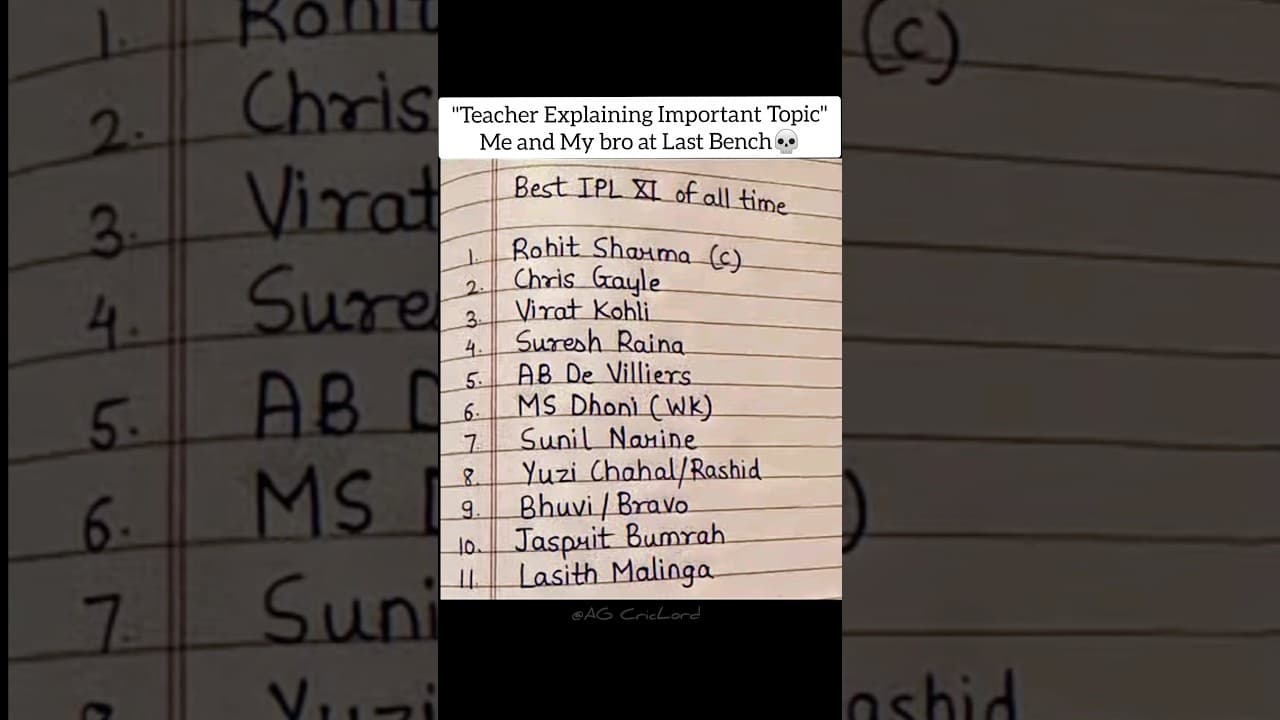 "Teacher Explaining Important Topic"
Me and My bro at Last Bench💀
Best IPL XI of all time
1. Rohit Sharma (C)
2. Chris Gayle
3. Virat Kohli
4. Suresh Raina
5. AB De Villiers
6. MS Dhoni (WK)
7. Sunil Narine
8. Yuzi Chahal/Rashid
9. Bhuvi/Bravo
10. Jasprit Bumrah
11. Lasith Malinga
@AG CricLord
1. Rohit (C)
2. Chris
3. Virat
4. Sure
5. AB D
6. MS D )
7. Suni
8. Yuzi ashid